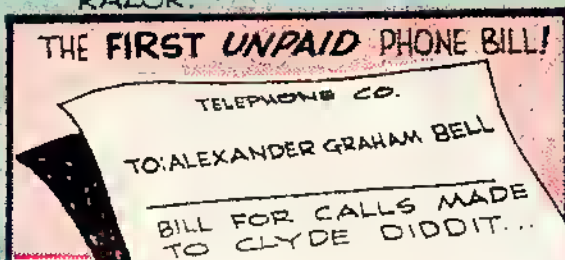 RAZOR.
THE FIRST UNPAID PHONE BILL!
TELEPHONE CO.
TO: ALEXANDER GRAHAM BELL
BILL FOR CALLS MADE
TO CLYDE DIDDIT...